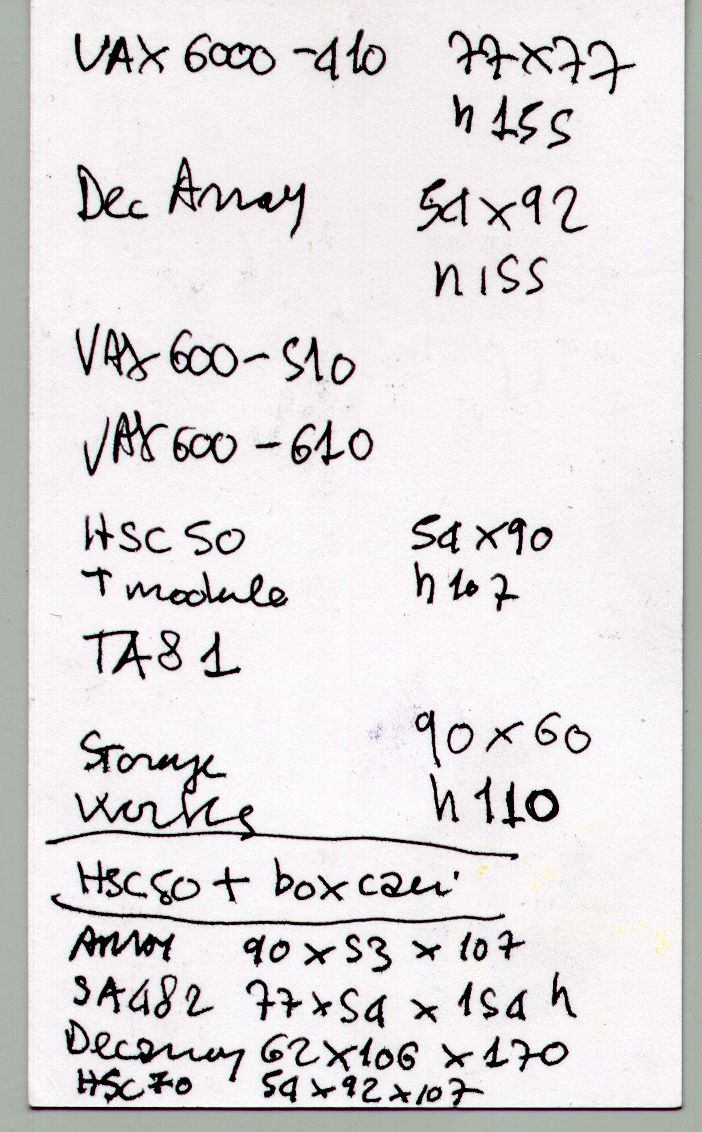 VAX 6000-410 77x77
h 155
Dec Array 54x92
h 155
VAX 600-510
VAX 600-610
HSC 50 54x90
+ module h 107
TA81
90x60
Storage
Works h 110
HSC50 + box cavi
Array 90x53x107
SA482 77x54x154 h
Decarray 62x106x170
HSC70 54x92x107